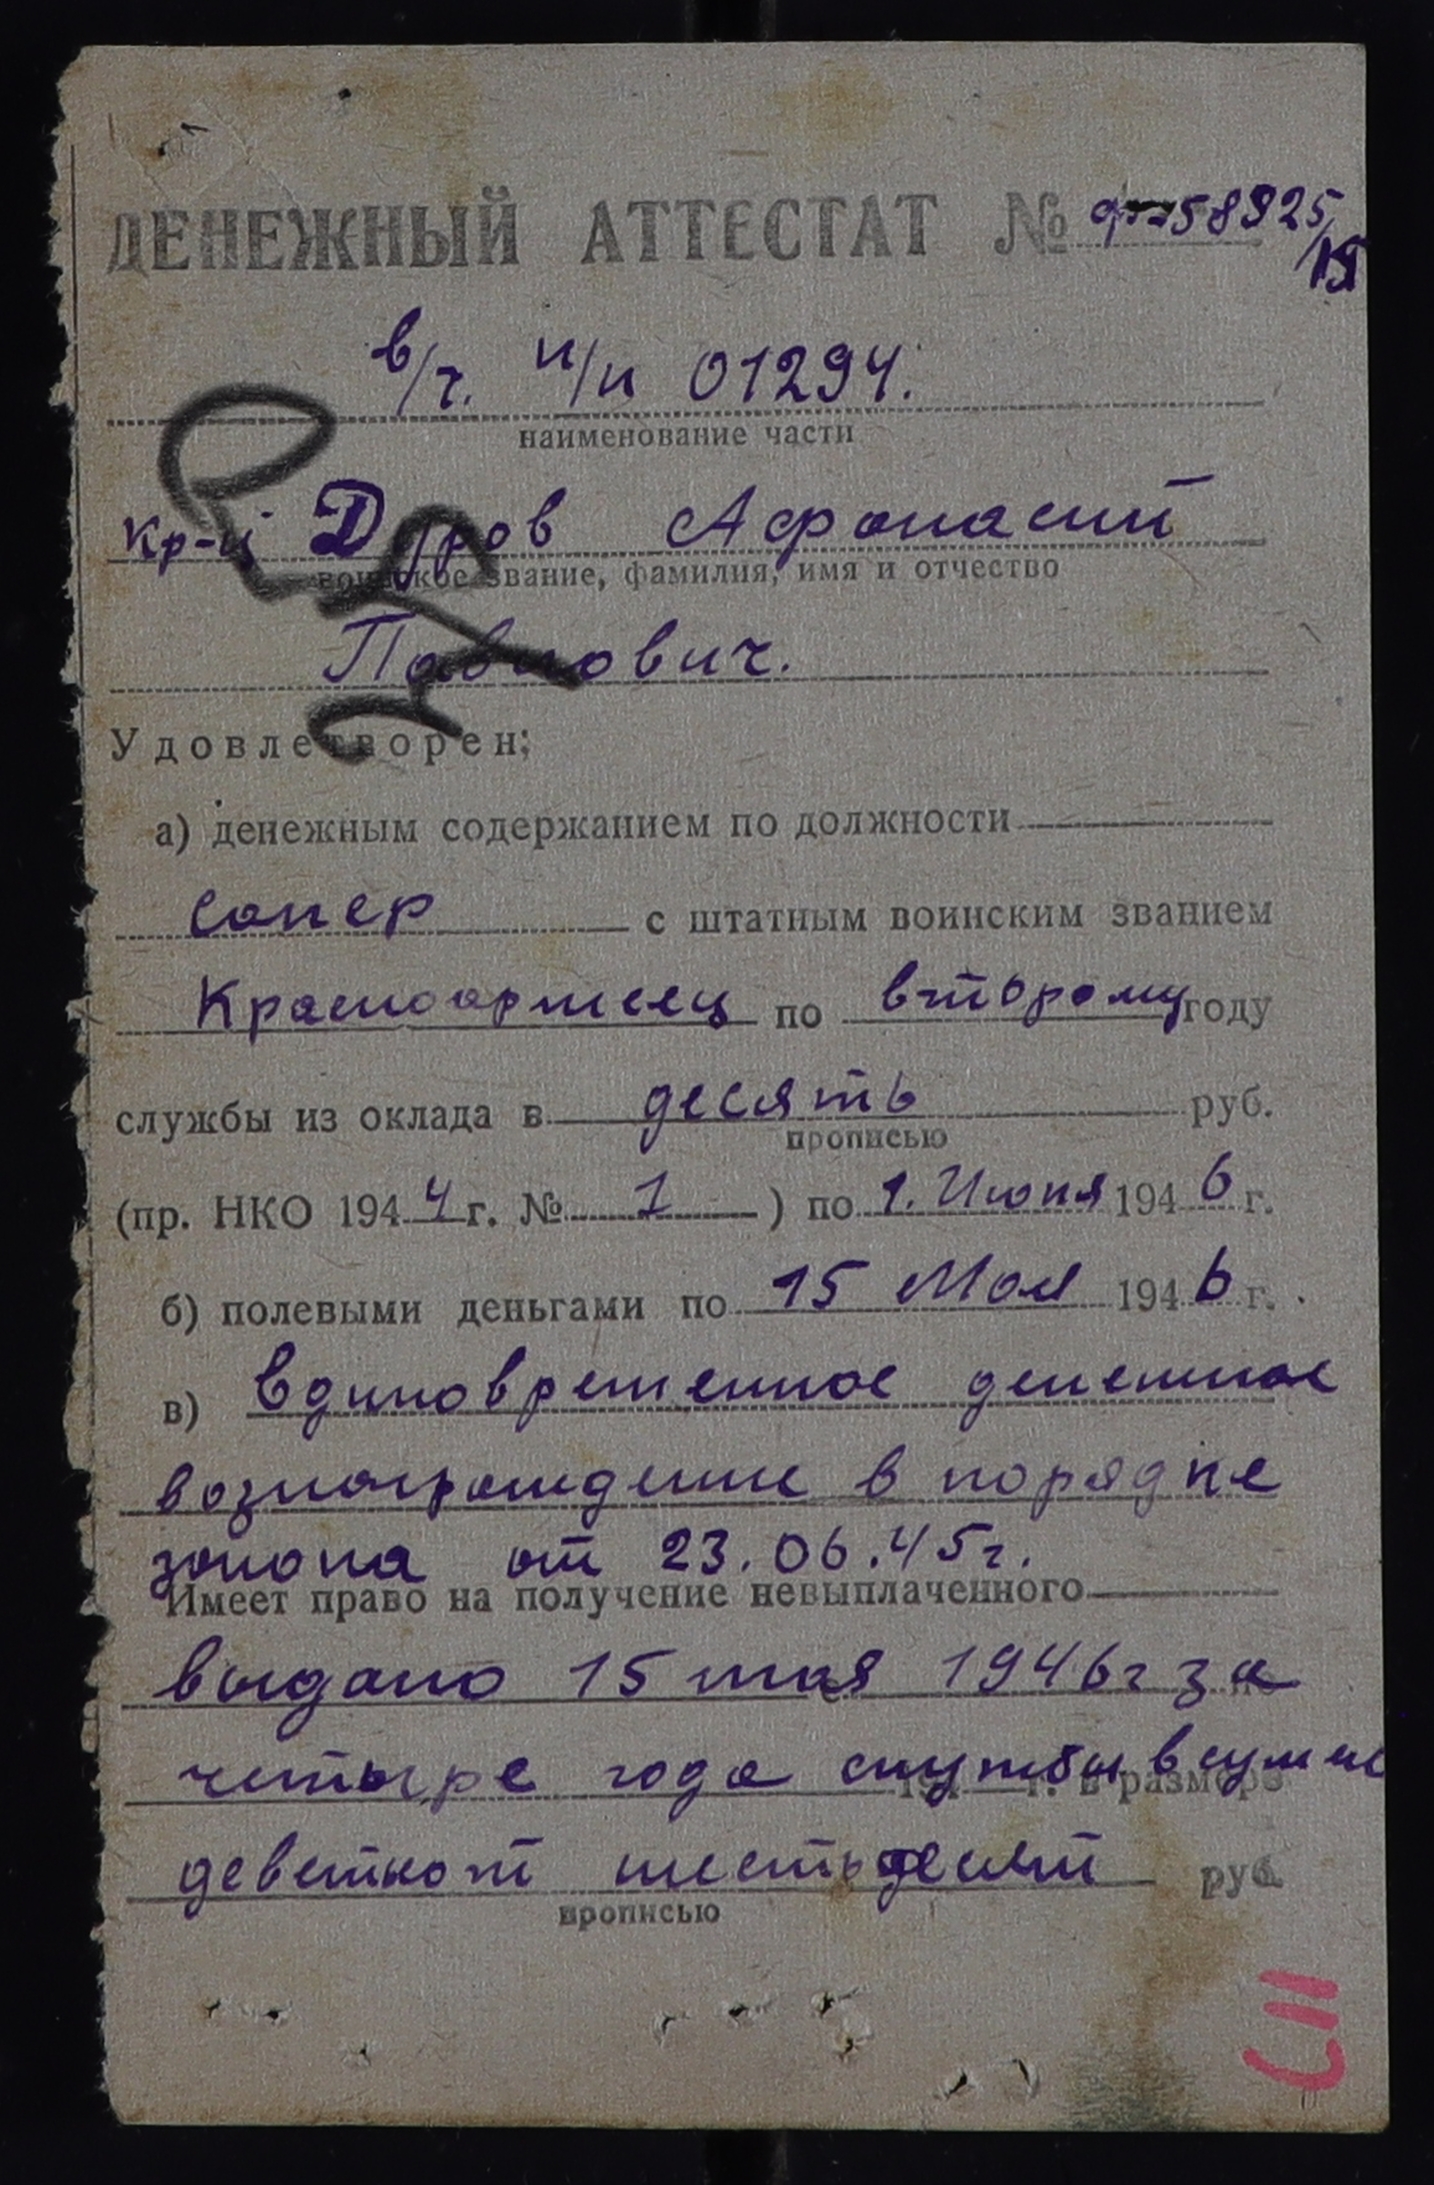 ДЕНЕЖНЫЙ АТТЕСТАТ № 58925/
в/ч. п/п 01294.
наименование части
Кр-ц Дуров Афонасий
воинское звание, фамилия, имя и отчество
Павлович.
Удовлетворен;
а) денежным содержанием по должности
сапер с штатным воинским званием
Красноармеец по второму году
службы из оклада в десять руб.
прописью
(пр. НКО 1944 г. № 1) по 1. Июня 1946 г.
б) полевыми деньгами по 15 Мая 1946 г.
в) Единовременное денежное
вознаграждение в порядке
закона от 23.06.45г.
Имеет право на получение невыплаченного
выдано 15 мая 1946г за
четыре года службы в сумме
194 г. в размере
девятьсот шестьдесят руб.
прописью